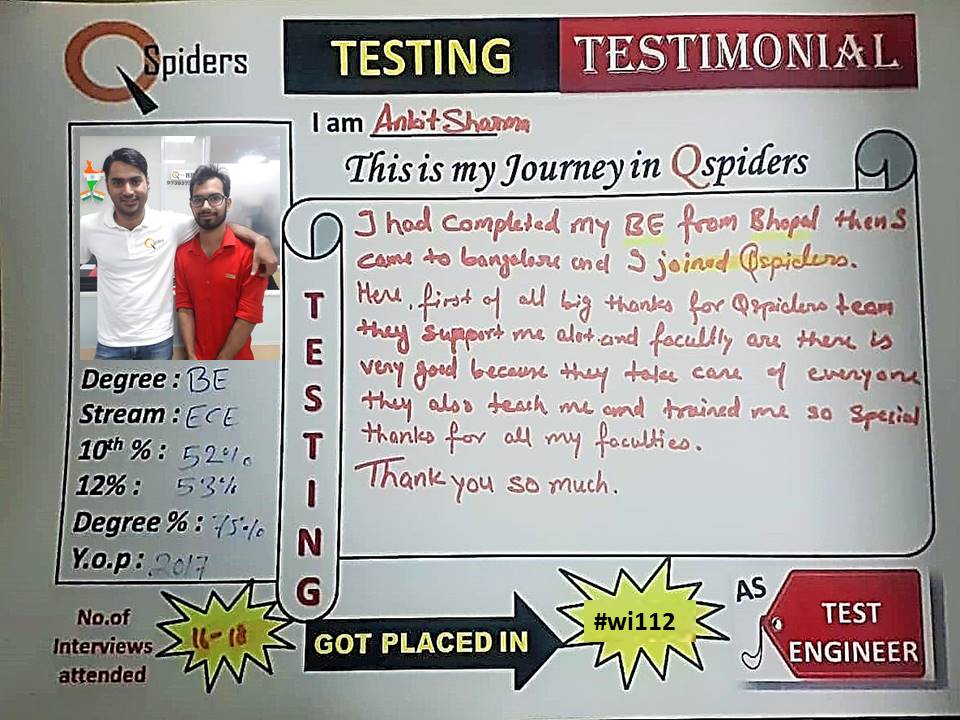 QSpiders
TESTING TESTIMONIAL
I am Ankit Sharma
This is my Journey in Qspiders
I had completed my BE from Bhopal then I
came to bangalore and I joined Qspiders.
Here, first of all big thanks for Qspiders team
they support me alot and facultly are there is
very good because they take care of everyone
they also teach me and trained me so special
thanks for all my faculties.
Thank you so much.
TESTING
Degree : BE
Stream : ECE
10th % : 52%
12% : 53%
Degree % : 75%
Y.o.p : 2017
No.of
Interviews
attended
16-18
GOT PLACED IN
#wi112
AS
TEST
ENGINEER